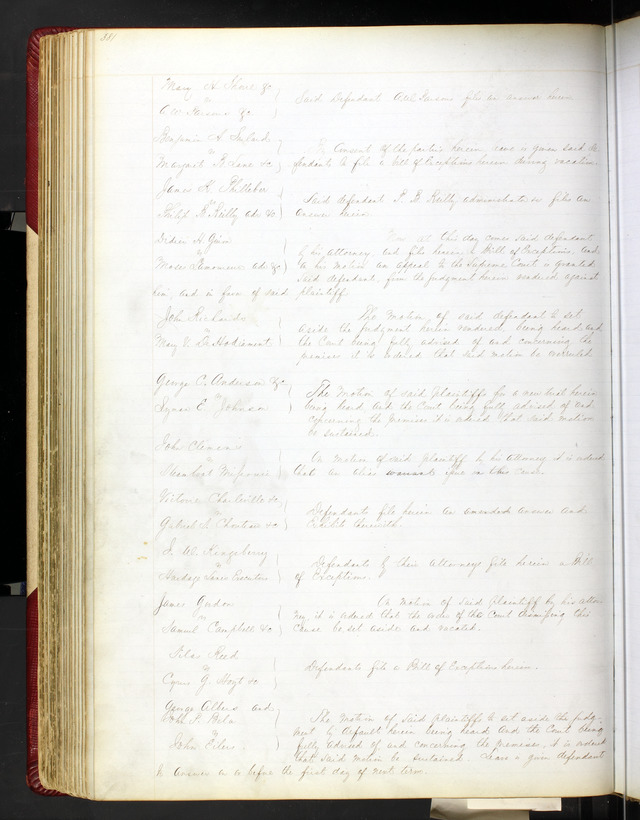 381
Mary A. &c
vs } Said Defendant files an answer herein
&c
Benjamin A.
vs } By Consent of the parties herein, leave is given said de
Margaret F. Lane &c } fendants to file a bill of Exceptions herein during vacation.
James H.
vs } Said defendant P. B. Reilly administrator files an
Philip B. Reilly adr &c } answer herein
H.
vs } Now at this day comes said defendant
Moses adr &c } by his attorney and files herein a Bill of Exceptions, and
on his motion an appeal to the Supreme Court is granted
said defendant, from the judgment herein rendered against
him, and in favor of said plaintiff.
John Richards
vs } The Motion of said defendant to set
aside the judgment herein rendered, being heard, and
Mary V. D. Hodiamont } the Court being fully advised of and concerning the
premises it is ordered that said motion be overruled
George C. Anderson &c
vs } The Motion of said plaintiffs for a new trial herein
being heard, and the Court being fully advised of and
E. Johnson } concerning the premises it is ordered that said motion
be sustained.
John Clemens
vs } On motion of said plaintiff by his attorney it is ordered
Steamboat } that an alias issue in this cause.
Victoire Charleville &c
vs } Defendants file herein an amended answer and
Gabriel S. Chouteau &c } Exhibit therewith.
J. W. Kingsberry
vs } Defendants by their Attorneys file herein a Bill
Executors } of Exceptions.
James
vs } On Motion of said plaintiff by his attor
ney, it is ordered that the order of this Court dismissing this
Samuel Campbell &c } cause be set aside and vacated.
Silas Reed
vs } Defendants file a Bill of Exceptions herein.
Cyrus G. Hoyt &c
George Albers and
John F.
vs } The motion of said plaintiffs to set aside the judg-
ment by default herein being heard and the Court being
John Eiler } fully advised of and concerning the premises, it is ordered
that said motion be sustained. Leave is given defendant
to answer on or before the first day of next term.